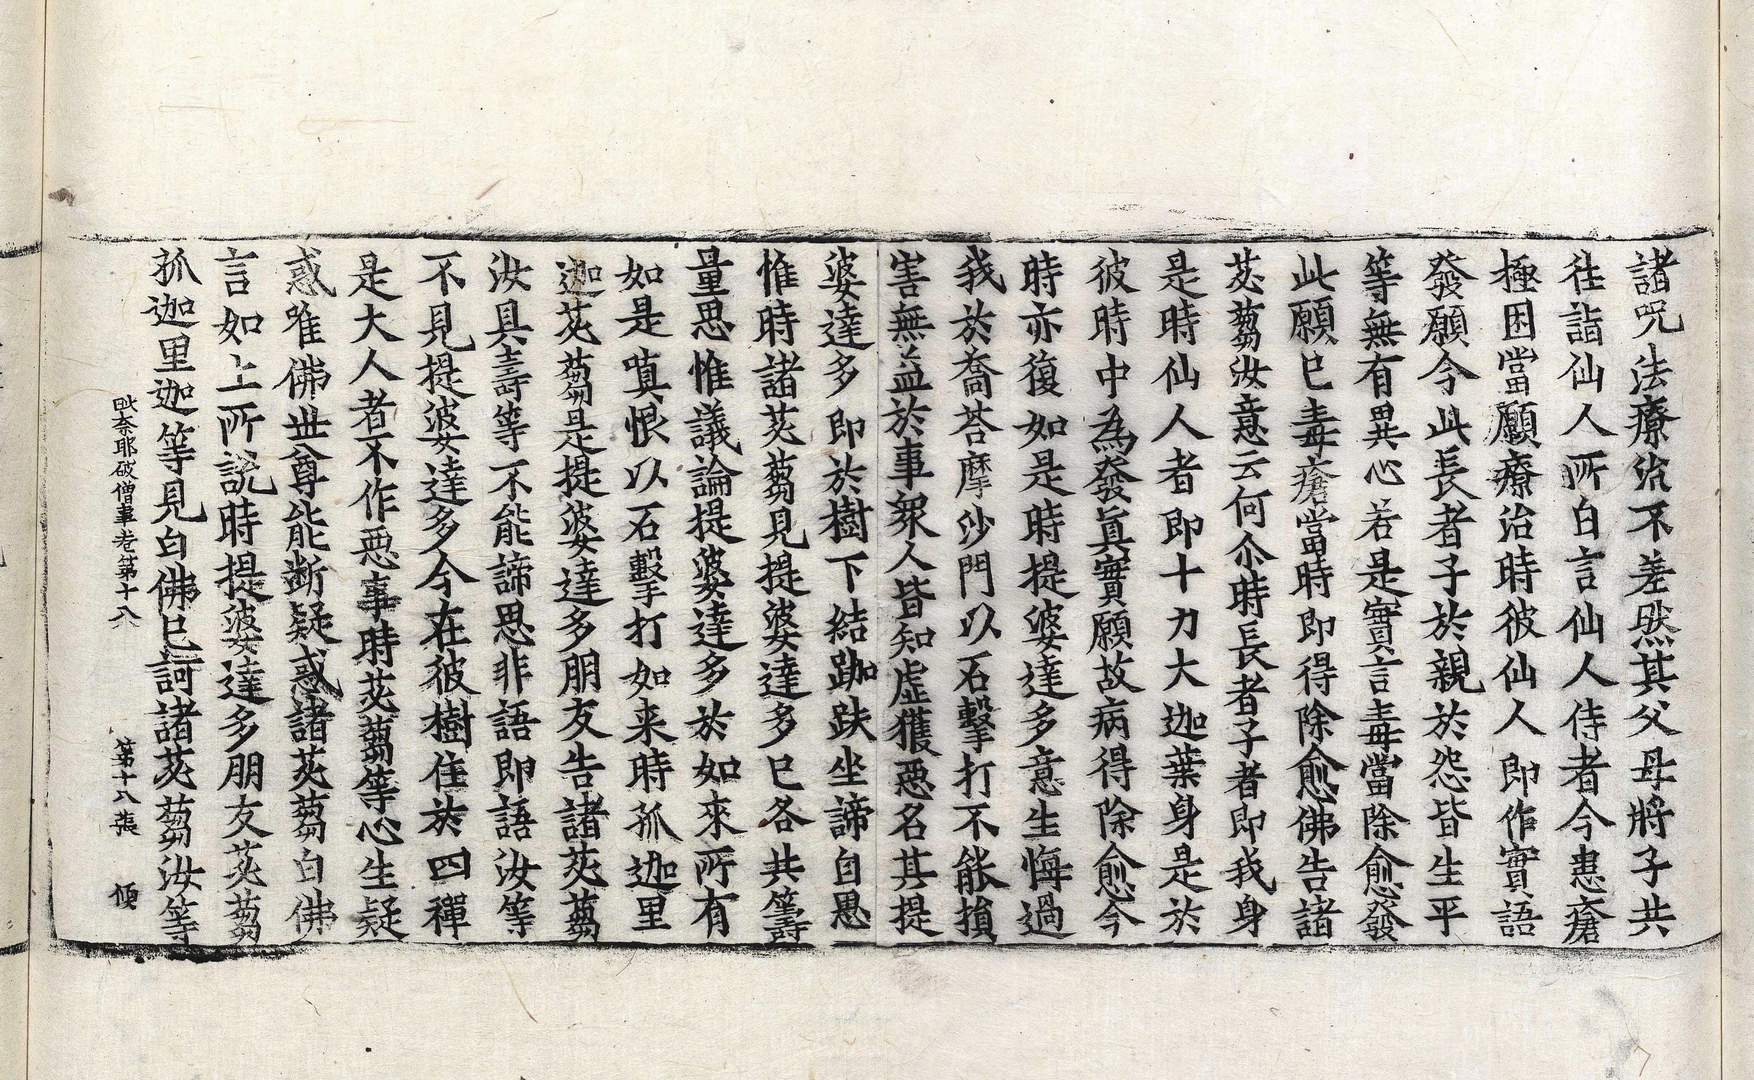 諸呪法療治不差然其父母將子共
往詣仙人所白言仙人侍者今患瘡
極困當願療治時彼仙人即作實語
發願今此長者子於親於怨皆生平
等無有異心若是實言毒當除愈發
此願已毒瘡當時即得除愈佛告諸
苾芻汝意云何尒時長者子者即我身
是時仙人者即十力大迦葉身是於
彼時中為發眞實願故病得除愈今
時亦復如是時提婆達多意生悔過
我於喬荅摩沙門以石擊打不能損
害無益於事衆人皆知虛獲惡名其提
婆達多即於樹下結跏趺坐諦自思
惟時諸苾芻見提婆達多已各共籌
量思惟議論提婆達多於如來所有
如是嗔恨以石擊打如来時孤迦里
迦苾芻是提婆達多朋友告諸苾芻
汝具壽等不能諦思非語即語汝等
不見提婆達多今在彼樹住於四禪
是大人者不作惡事時苾芻等心生疑
惑唯佛世尊能断疑惑諸苾芻白佛
言如上所説時提婆達多朋友苾芻
孤迦里迦等見白佛已訶諸苾芻汝等
毗奈耶破僧事卷第十八 第十八張 傾